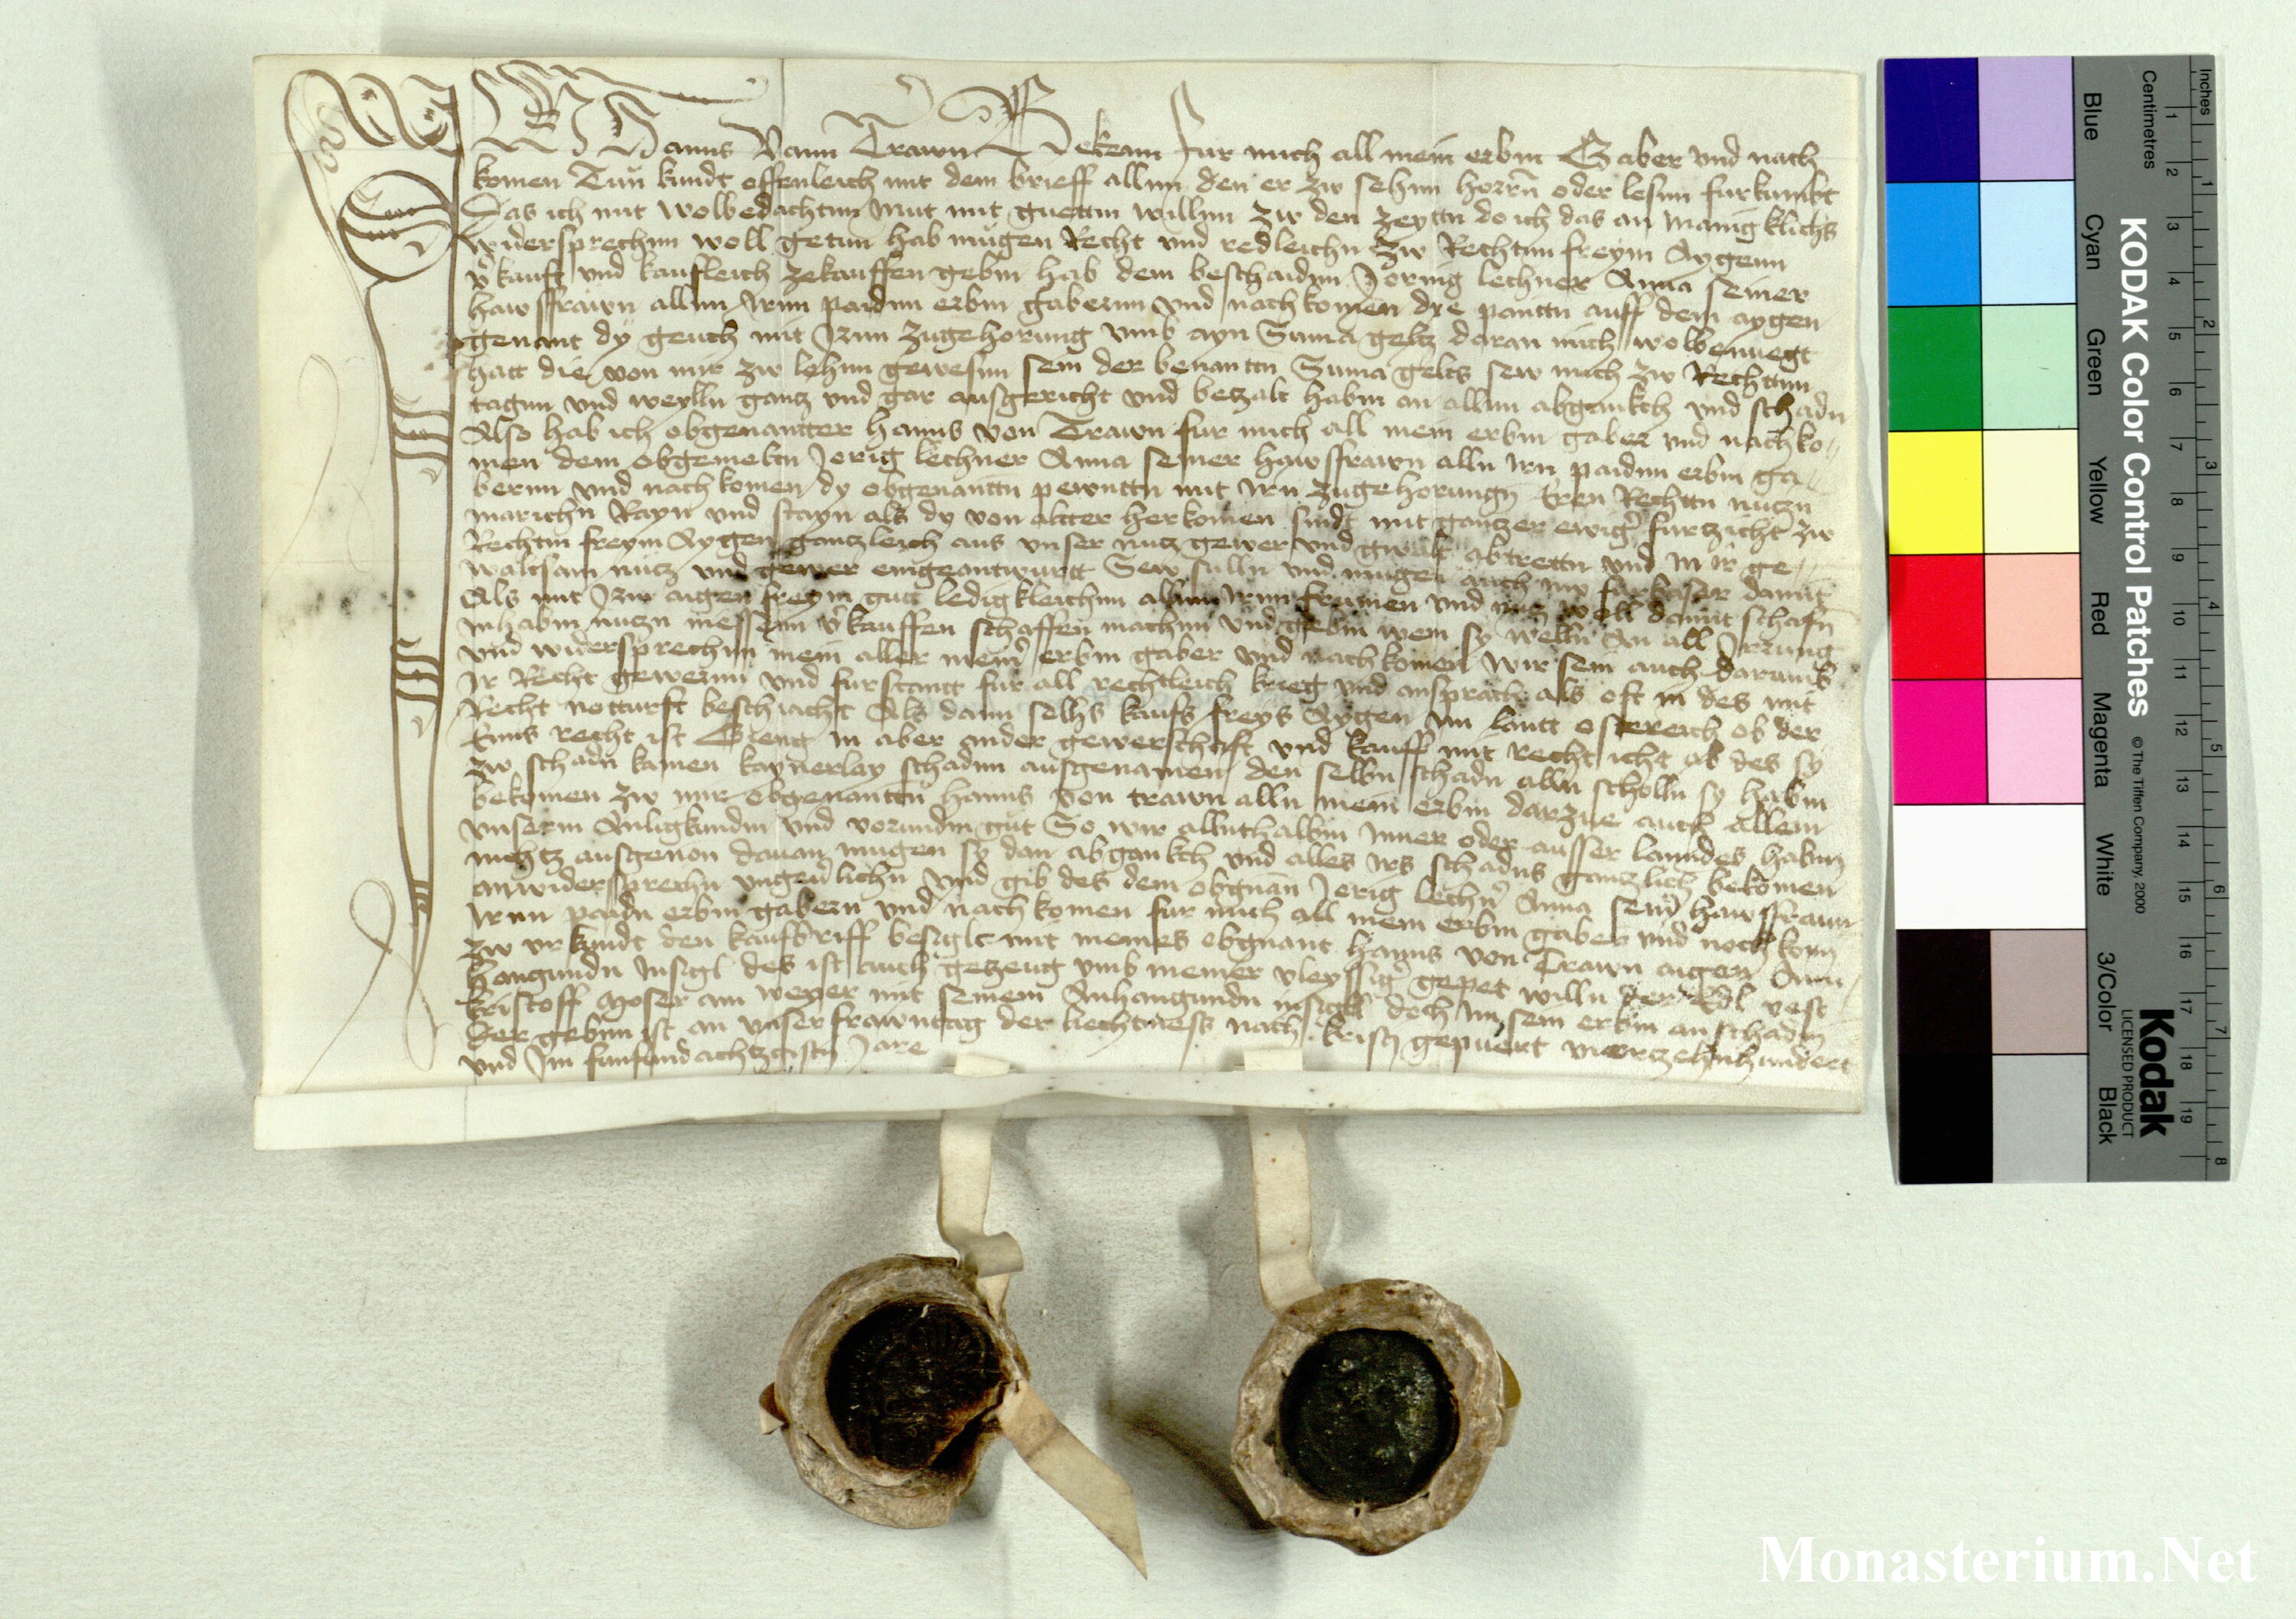 Ich Hanns Vonn Trawn Bekenn fur mich all mein erbm Gaber vnd nach
komen Tun kundt offenleich mit dem brieff allnn den er zw sehnn horrn oder lesnn furkumbt
Das ich mit wolbedachtm mut mit guettm willnn zw den zeyttn do ich das an manigklichs
widersprechnn woll getun hab mugen Recht vnd redleichn zw Rechtnn freym Aygenn
vkauft vnd kaufleich zekauffen gebm hab dem beschaidnn Joring lechner Anna seiner
hawsfrawn allnn Irnn paidnn erbm gabernn vnd nachkomen dye pauttn auff dem aygen
genant dy geuch mit Irnn zugehorung vmb ayn Suma geltz daran mich wolbenuegt
hatt die von mir zw lehnn gewesnn sein der benanttn Suma gelts sew mich zw Rechttnn
tagnn vnd weylln gantz vnd gar ausgericht vnd betzalt habm an allnn abgankch vnd schadn
Also hab ich obgenantter Hanns von Trawn fur mich all mein erbm gaber vnd nachko
men dem obgemeltn Jorig lechner Anna seiner hawsfrawn alln Irn paidnn erbm ga
bernn vnd nachkomen dy obgenanttn pewnttn mit Irn zugehorungn Eren Rechttn nutzn
marichn Rayn vnd stayn als dy von altter herkomen sindt mit gantzer ewiger furtzicht zw
Rechtm freym Aygen gantzleich aus vnser nutz gewer vnd gwalt abtrettn vnd in ir ge
waltsam nutz vnd gewer eingeantwurtt Sew sulln vnd mugen auch nw furbaser damit
Als mit Irm aigen freym gutt ledigkleichnn allnn Irnn frumen vnd nutz woll damit schafn
Inhabm nutzn niessenn vkauffen schaffen machnn vnd gebm wem sy welln An all Irrung
vnd widersprechnn mein aller meiner erbm gaber vnd nachkomen Wir sein auch darumb
Ir Recht gewernn vnd furstantt fur all rechtleich krieg vnd ansprach als oft in des mit
Recht notturft beschiacht Als dann selhs kaufs freys Aygen im lantt osterreich ob der
Enns recht ist Gieng in aber inder gewerschaft vnd kauff mit recht icht ab des sy
zw schadn kamen kaynerlay schadnn ausgenamen den selbn schadn alln scholln sy habm
bekomen zw mir obgenanttn Hanns von trawn alln mein erbm darzue auch allem
vnserm Anligkundn vnd varundn gut So wir allnthalbm Inner oder ausser lanndes habm
nichtz ausgenon dauan mugen sy dan abgankch vnd alles Irs schadns gantzlich bekomen
anwidersprechn vngeuerlichn vnd gib des dem obgnan Jorig lechner Anna seiner hawsfrawn
Irnn paidn erbm gabern vnd nachkomen fur mich all mein erbm gaber vnd nochkom
zw vrkundt den kaufbriff besiglt mit meines obgnant Hanns von Trawn aigen Ann
hangundn Insigl des ist auch getzeug vmb meiner vleyssiger gepet willn der Edl vest
kristoff Moser am weyer mit seinem Anhangundn insigll doch im sein erbm an schadm
Der gebnn ist an vnser frawntag der liechtmess nach kristz gepuert viertzehnhundert
vnd Im funfundachtzgistn Jare
KODAK Color Control Patches © The Tiffen Company, 2000
Kodak
LICENSED PRODUCT
Inches
Centimetres
Blue Cyan Green Yellow Red Magenta White 3/Color Black
1 2 3 4 5 6 7 8 9 10 11 12 13 14 15 16 17 18 19
1 2 3 4 5 6 7 8
Monasterium.Net